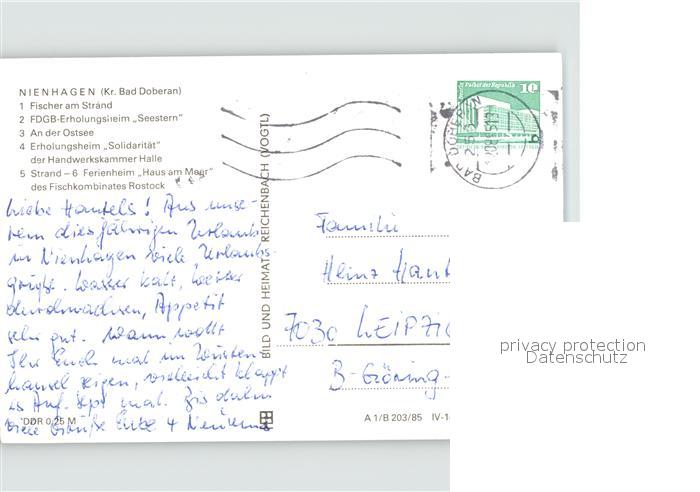 NIENHAGEN (Kr. Bad Doberan)
1 Fischer am Strand
2 FDGB-Erholungsheim „Seestern"
3 An der Ostsee
4 Erholungsheim „Solidarität"
der Handwerkskammer Halle
5 Strand – 6 Ferienheim „Haus am Meer"
des Fischkombinates Rostock
Liebe Hantels! Aus unse-
rem diesjährigen Urlaub
in Nienhagen viele Urlaubs-
grüße. Wasser kalt, Wetter
durchwachsen, Appetit
sehr gut. Wann wollt
Ihr Euch mal im
zeigen, vielleicht klappt
es Anf. Sept mal. Bis dahin
viele Grüße Eure 4
DDR 0,25 M
BILD UND HEIMAT REICHENBACH (VOGTL)
A 1/B 203/85 IV-1
Palast der Republik
10
BAD DOBERAN
Familie
Heinz Hant
7030 LEIPZIG
B-Göring-
privacy protection
Datenschutz